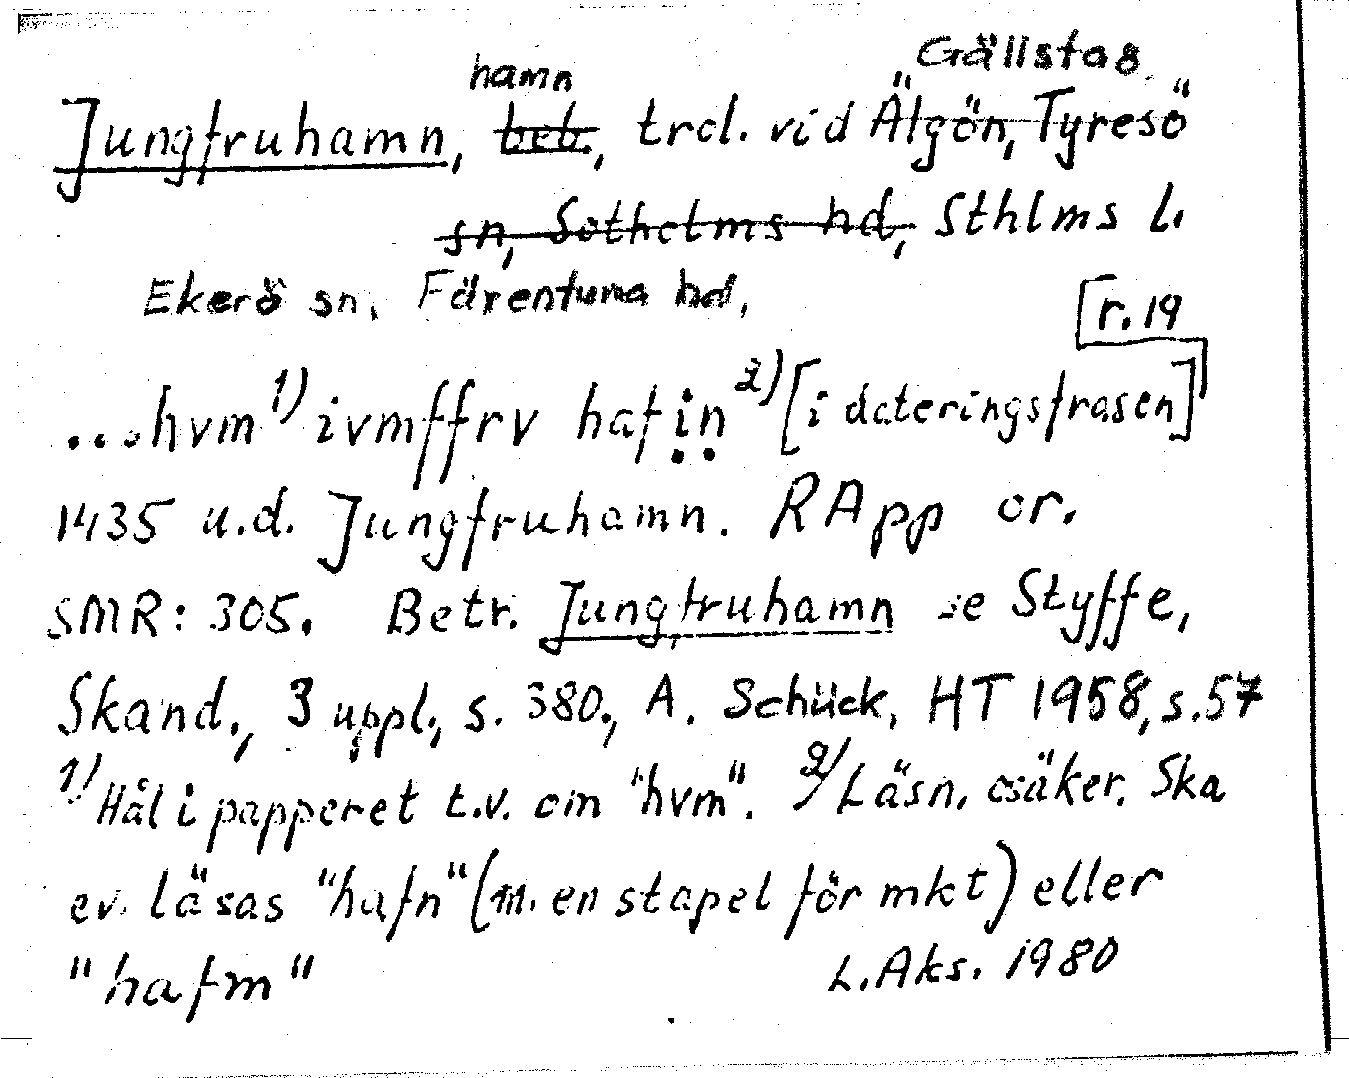 hamn Gällstaö
Jungfruhamn, beb., trol. vid Älgön, Tyresö
sn, Sotholms hd, Sthlms l.
Ekerö sn, Färentuna hd,
[r. 19
...hvm 1) ivmffrv hafin 2) [i dateringsfrasen]
1435 u.d. Jungfruhamn. RApp or.
SMR: 305. Betr. Jungfruhamn se Styffe,
Skand., 3 uppl., s. 380., A. Schück, HT 1958, s. 57
1) Hål i papperet t.v. om "hvm". 2) Läsn. osäker. Ska
ev. läsas "hafn" (m. en stapel för mkt) eller
"hafm" L. Aks. 1980